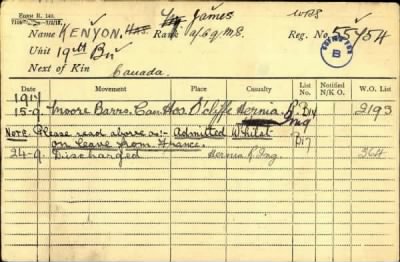 FORM R. 149.
James
WRS
Name KENYON. Rank a/b.q.m.s. Reg. No. 55454
Unit 19th Bn
Next of Kin Canada.
Date Movement Place Casualty List No. Notified N/K O. W.O. List
1917
15-9. Moore Barrs. Can Hos S'cliffe Hernia R. Ing 2193
Note. Please read above as:- Admitted Whilst
on leave from France.
24-9. Discharged Hernia R. Ing. 364